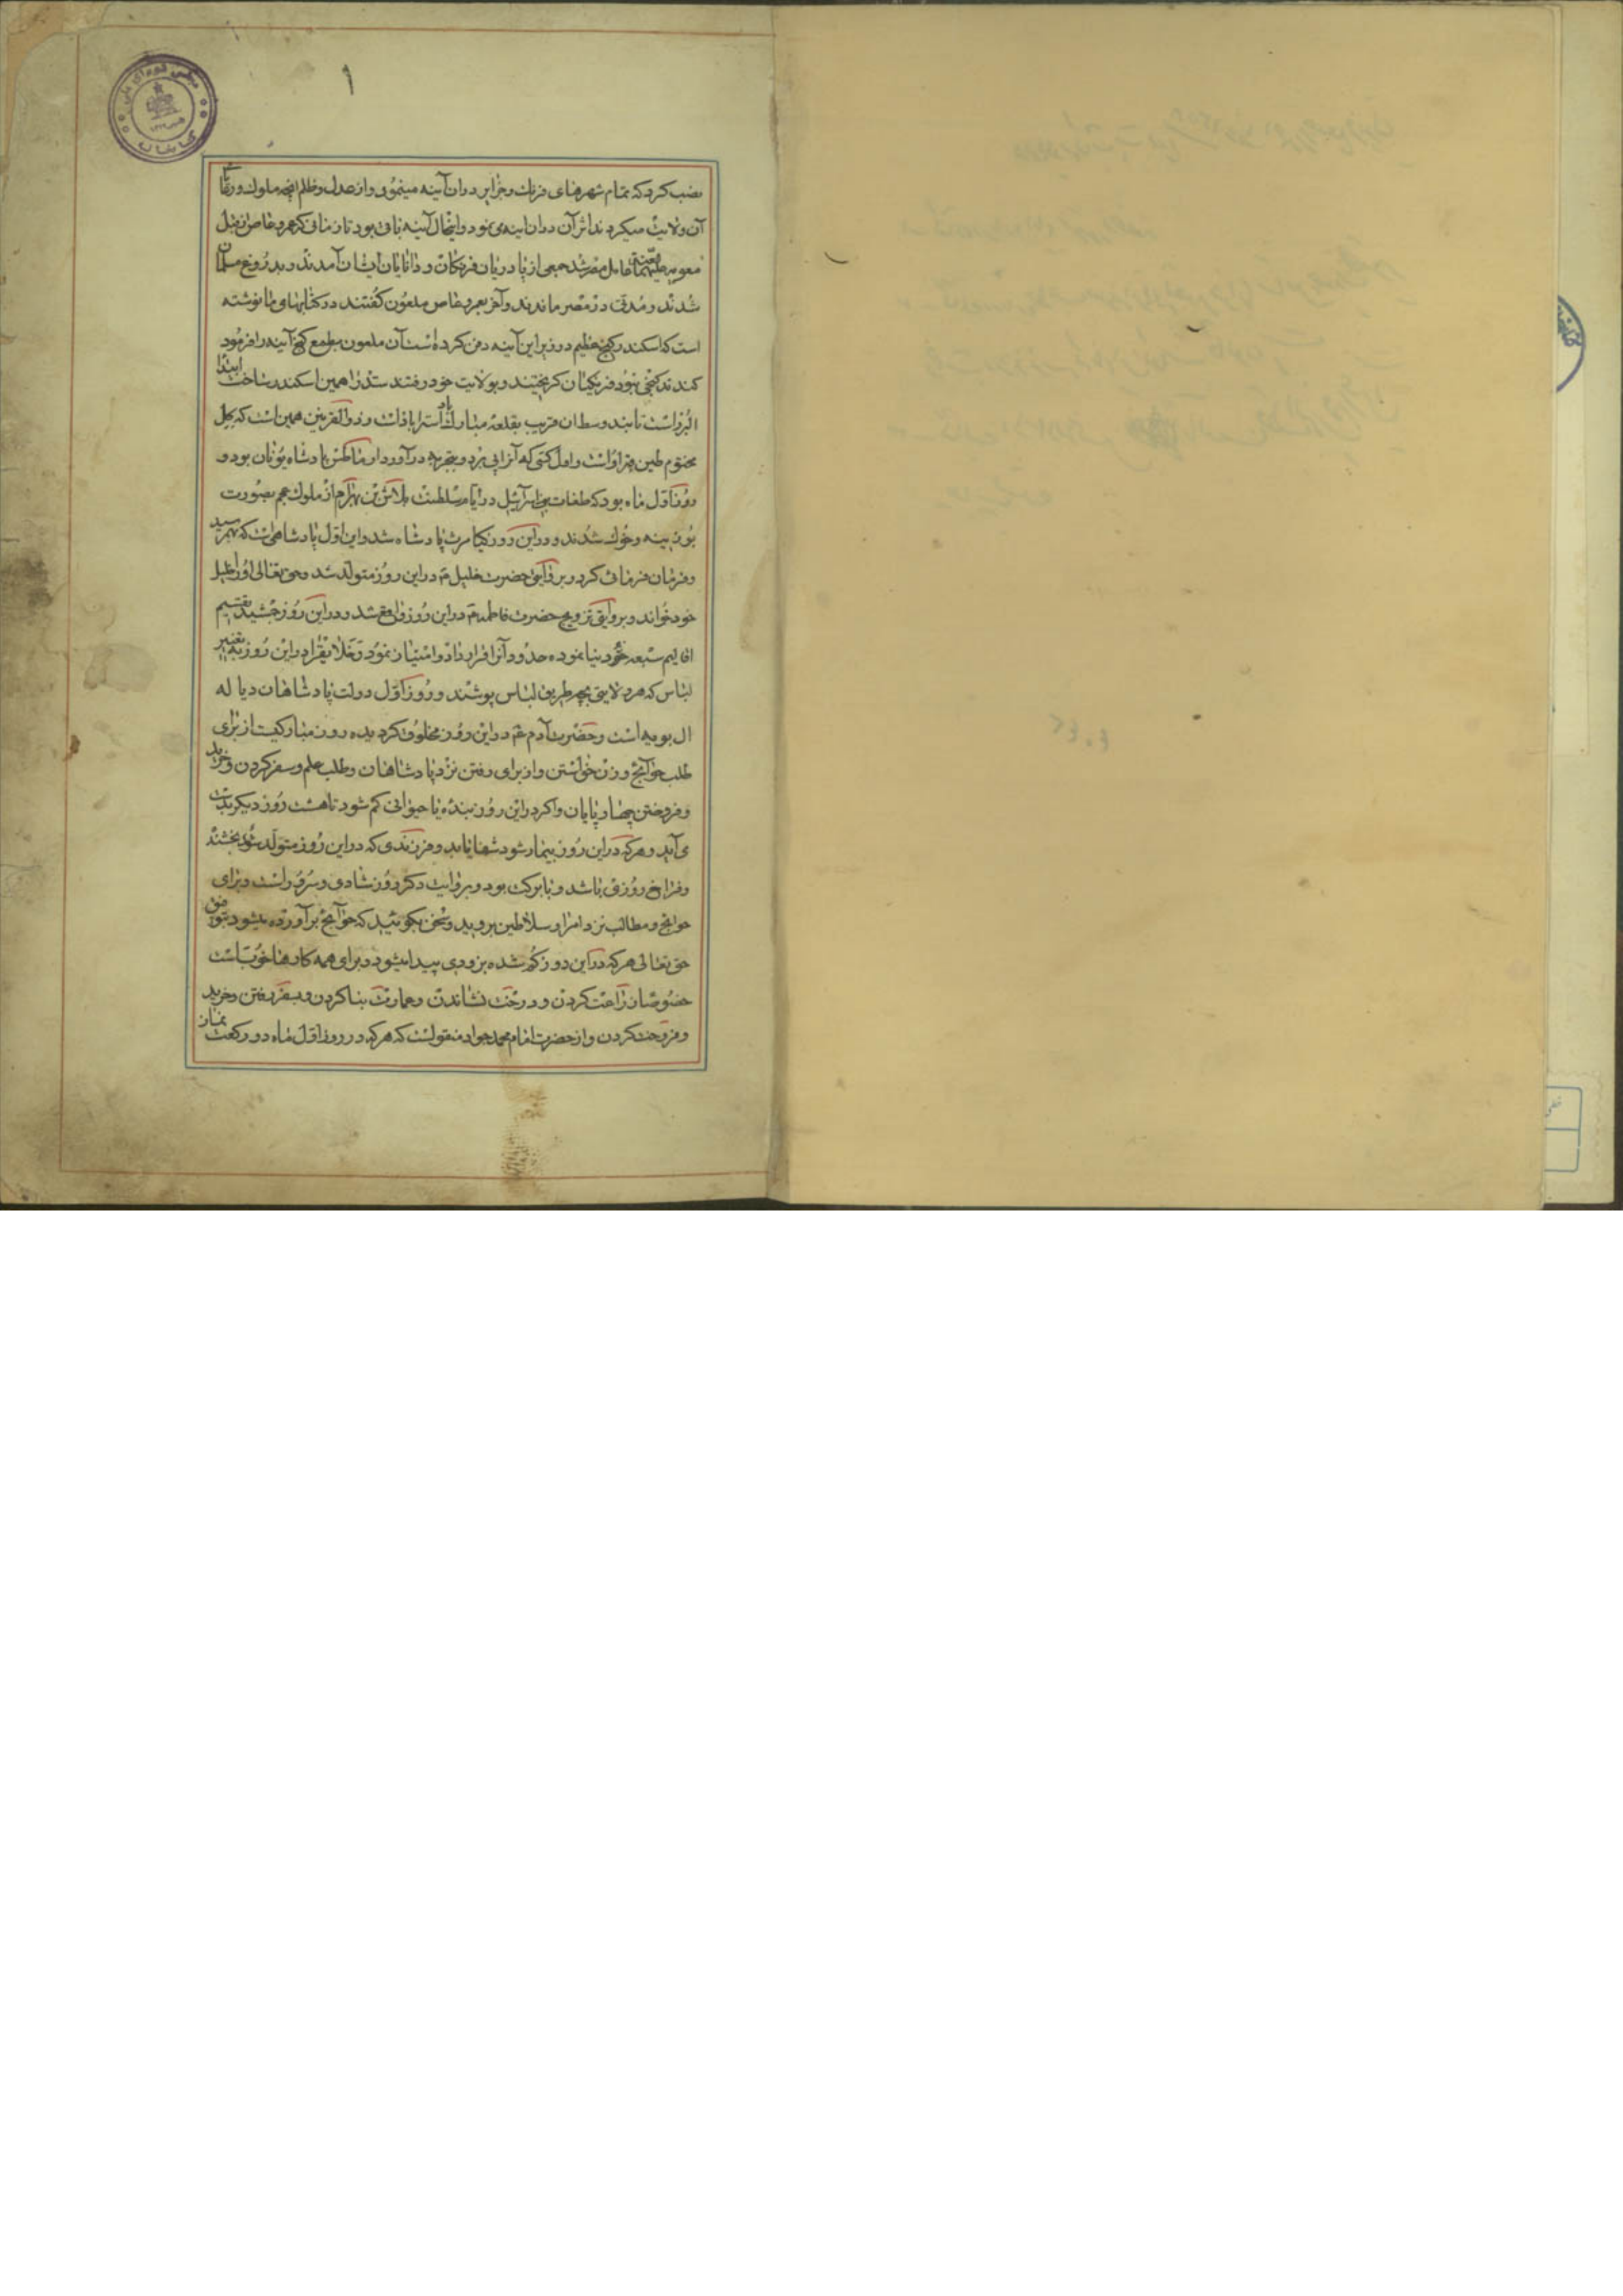 ۱
نصب کرد که تمام شهرهای فرنك و جزایر در ان آینه مینمود و از عدل و ظلم انچه ملوك و
آن ولایت میکردند اثر آن در ان اینه می نمود و اینحال آینه باقی بود تا زمانی که عمرو عاص از قبل
معویه علیهما اللعنة عامل مصر شد جمعی از پادریان فرنکان و دانایان ایشان آمدند و بدروغ مسلمان
شدند و مدتی در مصر ماندند و آخر بعمرو عاص ملعون کفتند در کتابهای ما نوشته
است که اسکندر کنج عظیم در زیر این آینه دفن کرده است آن ملعون بطمع کنج آینه را فرمود
کندند کنجی نبود فرنکیان کریختند و بولایت خود رفتند سد را همین اسکندر ساخت ابتدا
البرز است تا بند وسطان قریب بقلعه مبارك آباد استراباد است و ذوالقرنین همین است که بکل
مختوم طین قبر او است و اول کسی که آنرا پی برد و بتجربه در آورد پادشاه یونان بود و
روز اول ماه بود که طغات بنی اسرآئیل در ایام سلطنت بلاش بن بهرام از ملوك عجم بصورت
بوزینه و خوك شدند و در این روز کیامرث پادشاه شد و این اول پادشاهی است که بهم رسید
و فرمان فرمائی کرد و بروآیتی حضرت خلیل ع در این روز متولد شد و حق تعالی او را خلیل
خود خواند و بروآیتی تزویج حضرت فاطمه ع در این روز واقع شد و در این روز جمشید تقسیم
اقالیم سبعه دنیا نموده حدود آنرا قرار داد و امتیاز نمود در این روز به تغییر
لباس که هر ولایتی بچه طریق لباس پوشند و روز اول دولت پادشاهان دیاله
ال بویه است و حضرت آدم ع در این روز مخلوق کردیده روز مبارکیست از برای
طلب حوآئج و زن خواستن و از برای رفتن نزد پادشاهان و طلب علم و سفر کردن و خرید
و فروختن چهار پایان و اکر در این روز بنده یا حیوانی کم شود تا هشت روز دیکر بدست
می آید و هر که در این روز بیمار شود شفا یابد و فرزندی که در این روز متولد شود بخشنده
و فراخ روزی باشد و بابرکت بود و بروایت دکر روز شادی و سرور است و برای
حوائج و مطالب نزد امرا و سلاطین بروید و سخن بکوئید که حوآئج برآورده میشود بتوفیق
حق تعالی هر که در این روز کم شده بزودی پیدا میشود و برای همه کارها خوبست
خصوصا زراعت کردن و درخت نشاندن و عمارت بنا کردن و بسفر رفتن و خرید
و فروخت کردن و از حضرت امام محمد جواد منقولست که هر که در روز اول ماه دو رکعت نماز